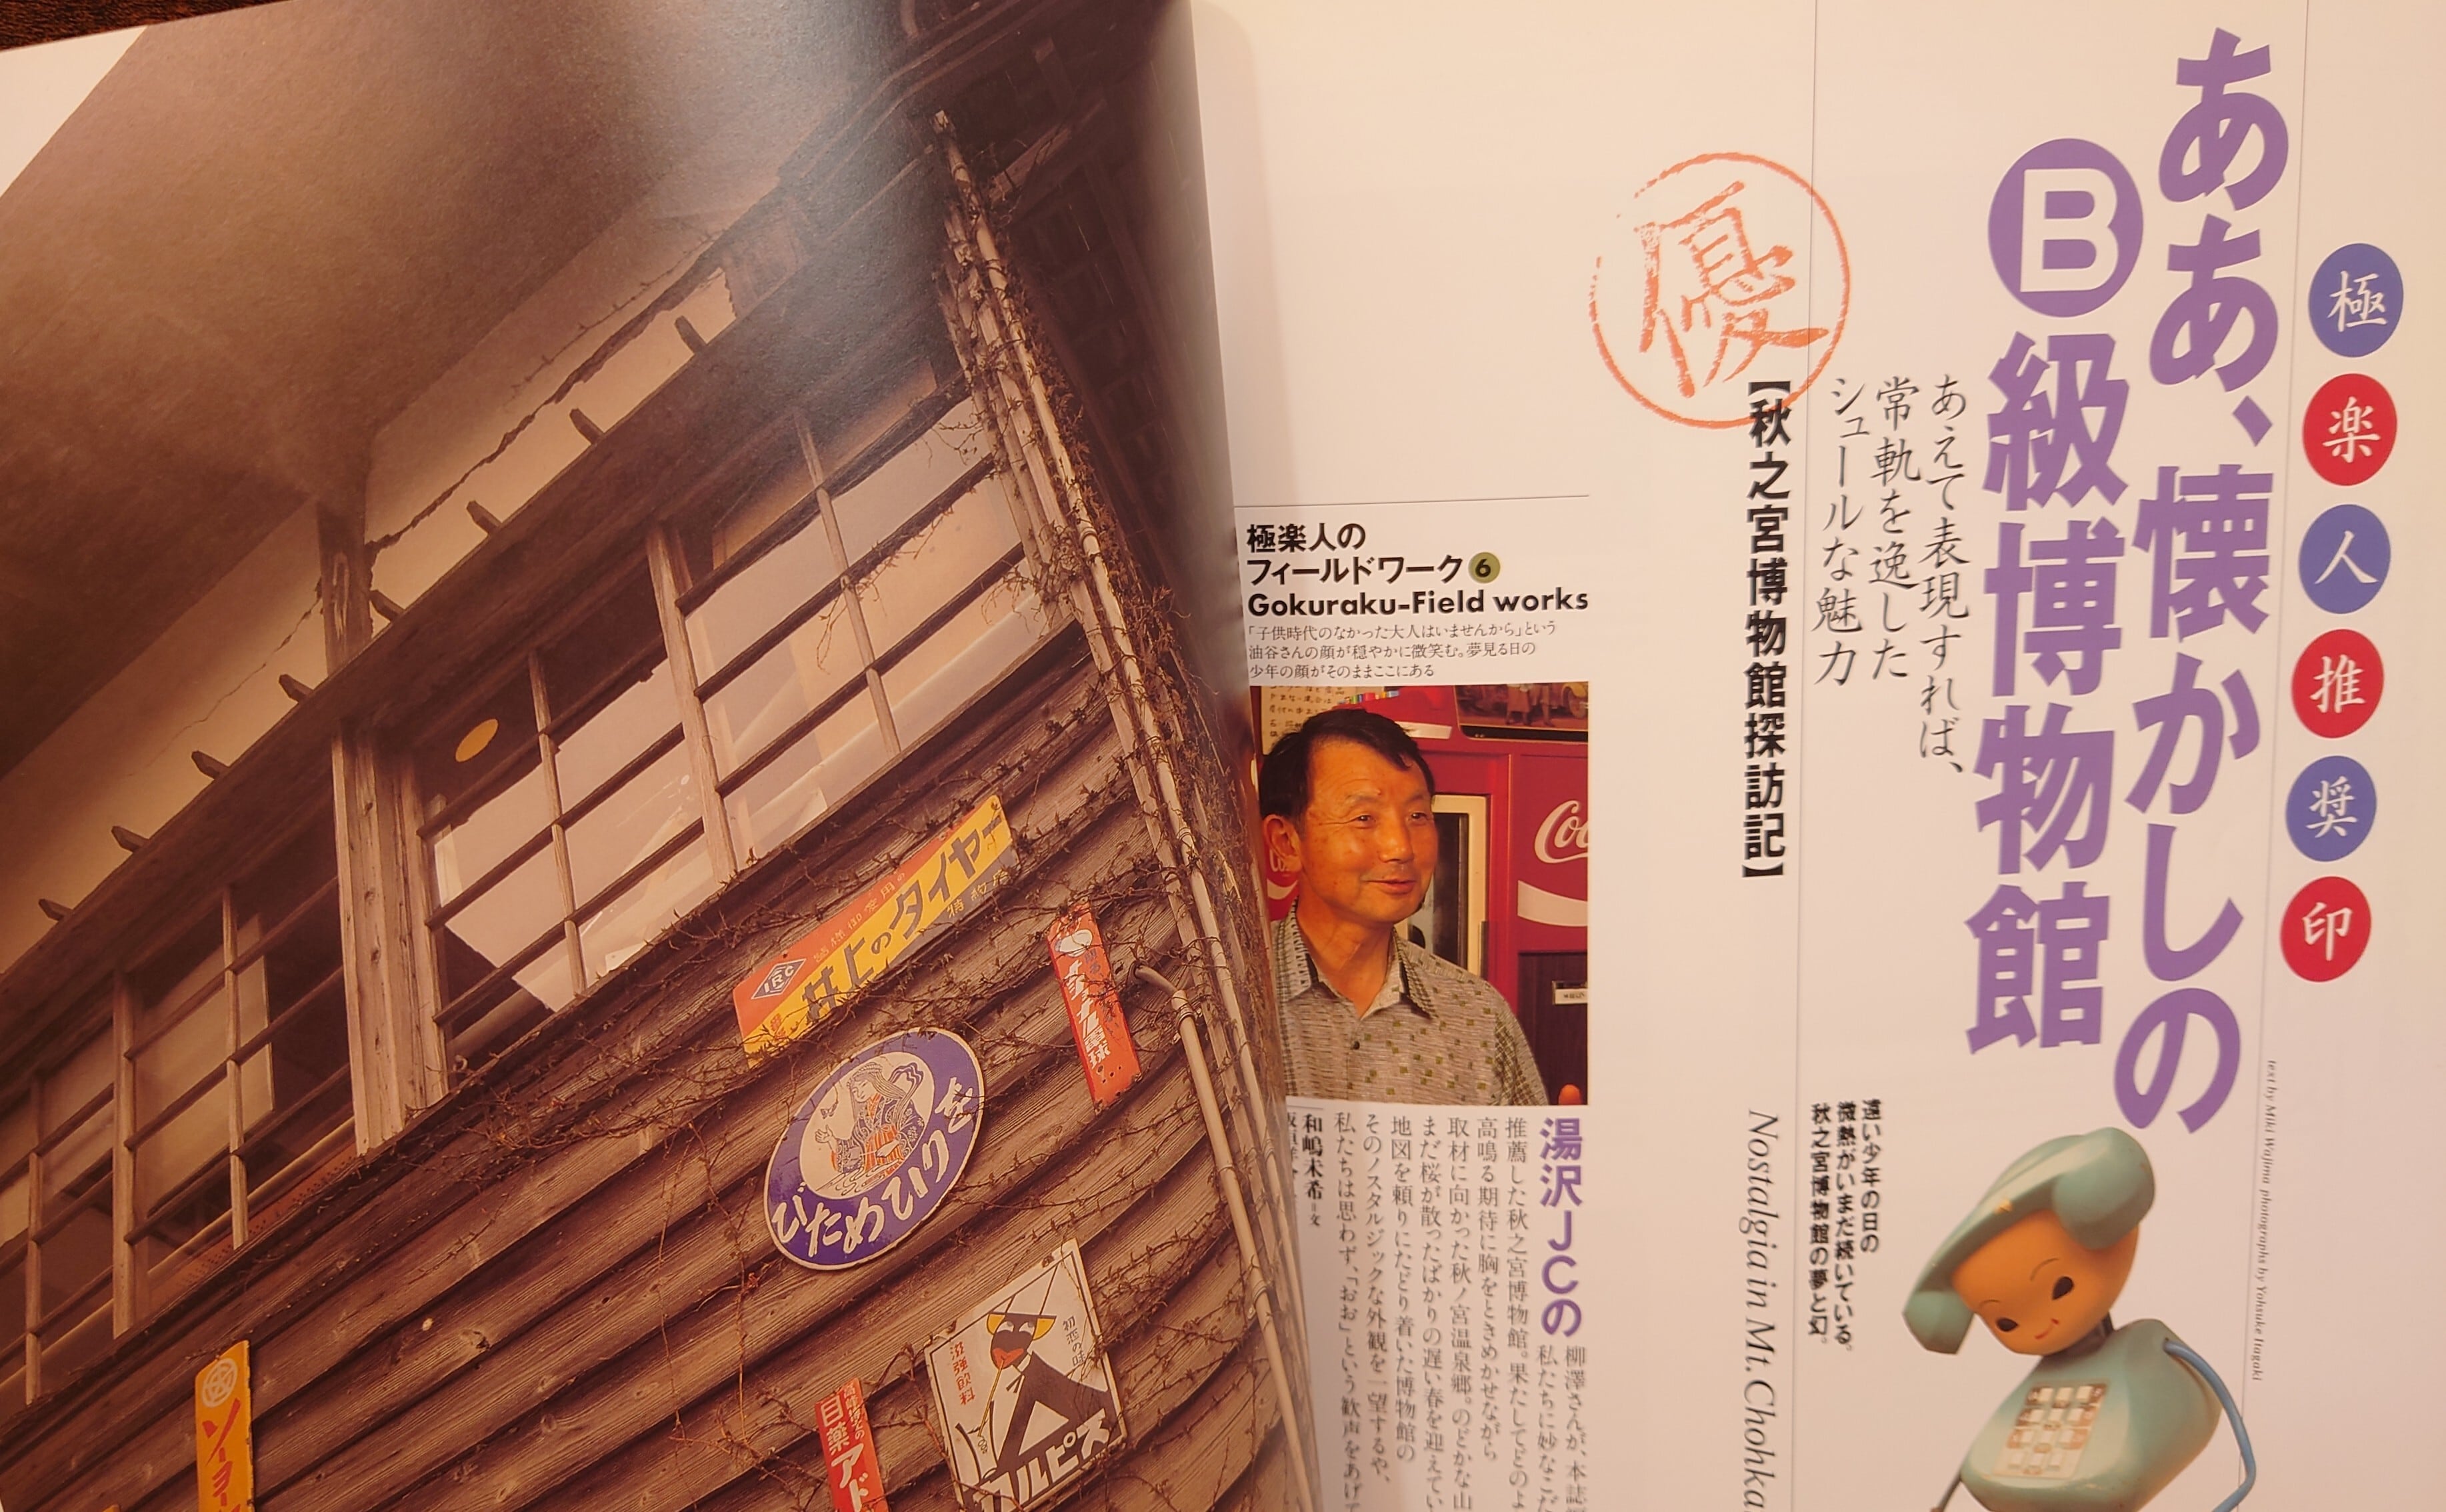 極楽人推奨印
ああ、懐かしの
B級博物館
あえて表現すれば、
常軌を逸した
シュールな魅力
優
【秋之宮博物館探訪記】
遠い少年の日の
微熱がいまだ続いている。
秋之宮博物館の夢と幻。
Nostalgia in Mt. Chohka
text by Miki Wajima photographs by Yohsuke Itagaki
極楽人の
フィールドワーク6
Gokuraku-Field works
「子供時代のなかった大人はいませんから」という
油谷さんの顔が穏やかに微笑む。夢見る日の
少年の顔がそのままここにある
Coc
湯沢JCの
柳澤さんが、本誌
私たちに妙なこだ
推薦した秋之宮博物館。果たしてどのよ
高鳴る期待に胸をときめかせながら
取材に向かった秋ノ宮温泉郷。のどかな山
まだ桜が散ったばかりの遅い春を迎えてい
地図を頼りにたどり着いた博物館の
そのノスタルジックな外観を一望するや、
私たちは思わず、「おお」という歓声をあげて
和嶋未希=文
IRC
井上のタイヤー
特約店
ナショナル電球
びためひりぎ
初恋の味
滋強飲料
カルピス
目薬アド
ソーヨー